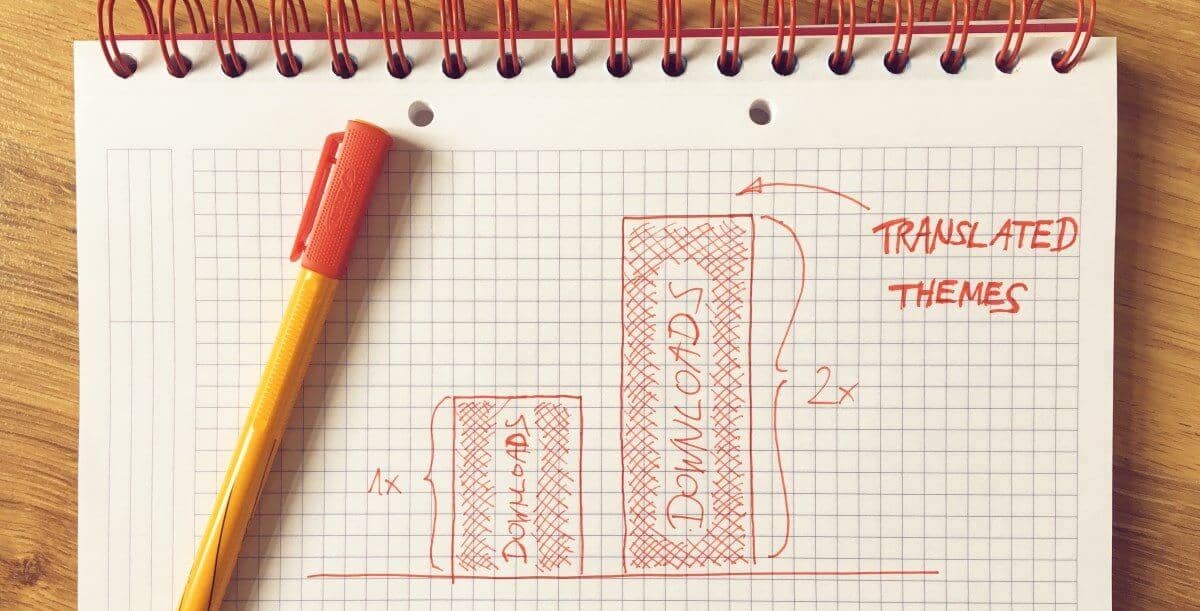 TRANSLATED
THEMES
DOWNLOADS
2x
1x
DOWNLOADS